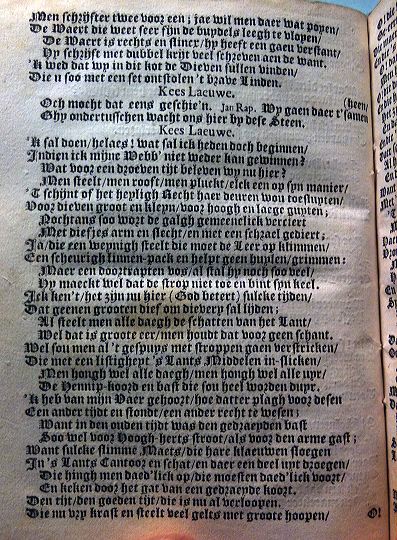 Men schrijfter twee voor een; jae wil men daer wat popen/
De Waert die weet seer fijn de buydels leegh te vlopen/
De Waert is rechts en slincx/hy heeft een gaeu verstant/
Hy schrijft met dubbel krijt veel schreven aen de want.
'k wed dat wy in dit kot de Dieven sullen vinden/
Die u soo met een set ontstolen 't brave Linden.
Kees Laeuwe.
Och mocht dat eens geschie'n. Jan Rap. Wy gaen daer t'samen (heen/
Ghy ondertusschen wacht ons hier by dese Steen.
Kees Laeuwe.
'K sal doen/helaes! wat sal ick heden doch beginnen/
Indien ick mijne Webb' niet weder kan gewinnen?
Wat voor een droeven tijt beleven wy nu hier?
Men steelt/men rooft/men pluckt/elck een op syn manier/
'T schijnt of het heyligh Recht haer deuren wou toesluyten/
Voor dieven groot en kleyn/voor hoogh en laege guyten;
Nochtans soo wort de galgh gemeenlick verciert
Met diefjes arm en slecht/en met een schrael gediert;
Ja/die een weynigh steelt die moet de Leer op klimmen/
Een scheurigh linnen-pack en helpt geen huylen/grimmen:
Maer een doortrapten vos/al stal hy noch soo veel/
Hy maeckt wel dat de strop niet toe en bint syn keel.
Ick ken't/het zijn nu hier (God betert) sulcke tijden/
Dat geenen grooten dief om dievery sal lijden;
Al steelt men alle daegh de schatten van het Lant/
Wel dat is groote eer/men houdt dat voor geen schant.
Wel sou men al 't gespuys met stroppen gaen verstricken/
Die met een listigheyt 's Lants Middelen in-slicken/
Men hongh wel alle daegh/men hongh wel alle uyr/
De Hennip-koord en bast die sou heel worden duyr.
'K heb van mijn Vaer gehoort/hoe datter plagh voor desen
Een ander tijdt en stondt/een ander recht te wesen;
Want in den ouden tijdt was den gedraeyden bast
Soo wel voor Hoogh-herts stroot/als voor den arme gast;
Want sulcke slimme Maets/die hare klaeuwen sloegen
In's Lants Cantoor en schat/en daer een deel uyt droegen/
Die hingh men daed'lick op/die moesten daed'lick voort/
En keken door het gat van een gedraeyde koort.
Den tijt/den goeden tijt/die is nu al verloopen.
Die nu vry krast en steelt veel gelts met groote hoopen/